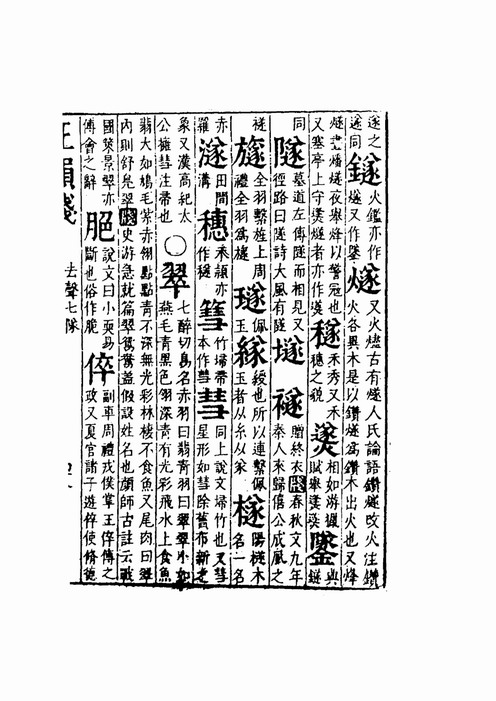 遂之遂同鐩火鑑亦作燧又作鋻燧又火燧古有燧人氏論語鑽燧改火注鑽火各異木是以鑽燧爲鑽木出火也又烽
燧晝燔燧夜舉烽以警寇也又塞亭上守燧者亦作㷭穟禾秀又禾穗之貌㷭相如游獵賦舉燧鐆與鐩
同隧墓道左傳隧而相見又徑路曰隧詩大風有隧㙽襚贈終衣箋春秋文九年秦人來歸僖公成風之
襚旞全羽繫旌上周禮全羽爲旞璲佩玉綬綬也所以連繫佩玉者从糸从㒸檖陽檖木名一名
赤羅澻田間溝穗禾穎亦作穟篲竹埽帚本作彗彗同上說文埽竹也又彗星形如彗除舊布新之
象又漢高紀太公擁彗注帚也〇翠七醉切鳥名赤羽曰翡青羽曰翠翠小如燕毛青黑色翎深青有光彩飛水上食魚
翡大如鳩毛紫赤翎點點青不深無光彩林棲不食魚又尾肉曰翠內則舒鳧翠箋史游急就篇翠鴛鴦蓋假設姓名也顔師古註云戰
國策景翠亦傅會之辭脃說文曰小耎易斷也俗作脆倅副車周禮戎僕掌王倅傳之政又夏官諸子遊倅使脩德
正韻箋 去聲七隊